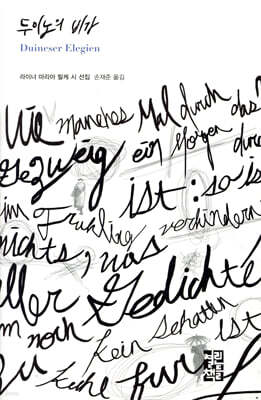 두이노의 비가
Duineser Elegien
라이너 마리아 릴케 시 선집 손재준 옮김
Wie manches Mal durch das
Gezweig ein Morgen durch
ist: so is
im Frühling verhindern
nichts, was
aller Gedichte
noch kein Schatten
zu kühe für ist
열린책들